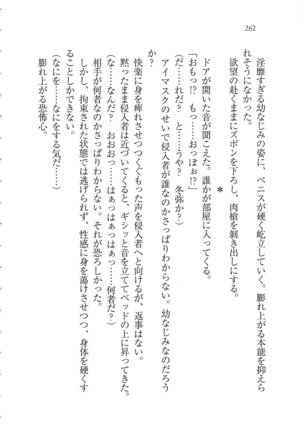 262
淫靡すぎる幼なじみの姿に、ペニスが硬く屹立していく。膨れ上がる本能を抑えら
れそうになかった。
欲望の赴くままにズボンを下ろし、肉槍を剥き出しにする。
*
ドアが開いた音が聞こえた。誰かが部屋に入ってくる。
「おもっ!?　もっ……おっぽぉ!?」
(だ……れだ？　と……うや？　冬弥か？)
アイマスクのせいで侵入者が誰なのかさっぱりわからない。幼なじみなのだろう
か？
快楽に身を痺れさせつつくぐもった声を侵入者へと向けるが、返事はない。
黙ったまま侵入者は近づいてくると、ギシッと音を立ててベッドの上に昇ってきた。
(な……なんだ？　はぁっはぁっはぁっ……何者だ？)
相手が何者なのかさっぱりわからない。それが恐ろしかった。
しかし、拘束された状態では逃げられず、性感に身を蕩けさせつつ、身体を硬くす
ることしかできない。
(なにを……なにをする気だ……)
膨れ上がる恐怖心。